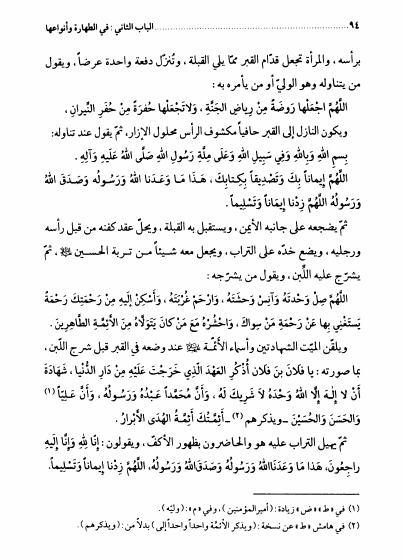 ٩٤ ........ الباب الثاني : في الطهارة وأنواعها
برأسه ، والمرأة تجعل قدّام القبر ممّا يلي القبلة ، وتُنزل دفعة واحدة عرضاً ، ويقول
من يتناوله وهو الوليّ أو من يأمره به :
اللَّهُمَّ اجْعَلْهَا رَوْضَةً مِنْ رِيَاضِ الجَنَّةِ ، وَلاَتَجْعَلْهَا حُفرَةً مِنْ حُفَرِ النِّيرانِ .
ويكون النازل إلى القبر حافياً مكشوف الرأس محلول الإزار، ثمّ يقول عند تناوله:
بِسمِ اللهِ وَبِاللهِ وَفِي سَبِيلِ اللهِ وَعَلَى مِلَّةِ رَسُولِ اللهِ صَلَّى اللهُ عَلَيهِ وَآلِهِ .
اللَّهُمَّ إِيمَاناً بِكَ وَتَصْدِيقاً بِكِتابِكَ ، هَـذَا مَـا وَعَـدَنا اللهُ وَرَسُـولُه وَصَدَقَ اللهُ
وَرَسُولُهُ اللَّهُمَّ زِدْنا إِيمَاناً وَتَسْلِيماً .
ثمّ يضجعه على جانبه الأيمن ، ويستقبل به القبلة ، ويحلّ عقد كفنه من قبل رأسه
ورجليه ، ويضع خدّه على التراب ، ويجعل معه شيئاً من تربة الحسين ﷺ ، ثمّ
يشرّج عليه اللَّبِن ، ويقول من يشرّجه :
اللَّهُمَّ صِلْ وَحْدَتَهُ وَآنِسْ وَحشَتَهُ ، وَارْحَمْ غُرْبَتَهُ ، وَأَسْكِنْ إِلَيهِ مِنْ رَحْمَتِكَ رَحْمَةً
يَستَغْنِي بِها عَنْ رَحْمَةِ مَنْ سِواكَ ، وَاحْشُرْهُ مَعَ مَنْ كانَ يَتَوَلاّهُ مِنَ الأَئِمَّةِ الطَّاهِرِينَ .
ويلقّن الميّت الشهادتين وأسماء الأئمّة عند وضعه في القبر قبل شرج اللبن ،
بما صورته : يا فلانَ بنَ فلان أُذْكُرِ العَهْدَ الَّذِي خَرَجْتَ عَلَيْهِ مِنْ دَارِ الدُّنْيا ، شَهَادَةَ
أَنْ لا إِلـٰهَ إِلَّا اللهُ وَحْدَهُ لاَ شَرِيكَ لَهُ ، وَأَنَّ مُحَمَّداً عَبْدُهُ وَرَسُولُهُ ، وَأَنَّ عَلِيّاً (١)
وَالحَسَنَ وَالحُسَيْنَ ــ ويذكرهم (٢) ــ أَئِمَّتُكَ أَئِمَّةُ الهُدَى الأَبْرارُ .
ثمّ يهيل التراب عليه هو والحاضرون بظهور الأكف، ويقولون: إِنَّا لِلهِ وَإِنَّا إِلَيهِ
راجِعُونَ، هَذَا مَا وَعَدَنَا اللهُ وَرَسُولُهُ وَصَدَقَ اللهُ وَرَسُولُهُ، اللَّهُمَّ زِدْنا إِيمَاناً وَتَسْلِيماً.
(١) في «ط» «ض» زيادة : (أميرالمؤمنين) ، وفي «م» : (وليّه) .
(٢) في هامش «ط» عن نسخة : (ويذكر الأئمّة واحداً واحداً إلى) بدلاً من : (ويذكرهم) .